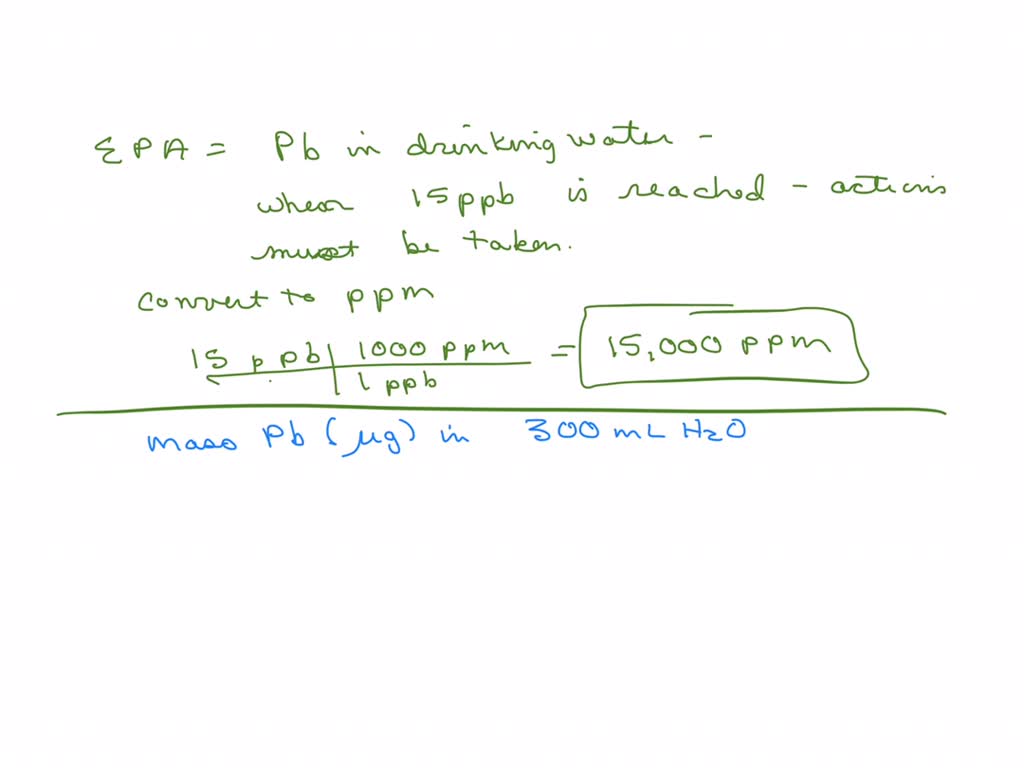 EPA = Pb in drinking water -
when 15 ppb is reached - actions
must be taken.
convert to ppm
15 ppb | 1000 ppm = 15,000 ppm
| 1 ppb
mass Pb (μg) in 300 mL H2O